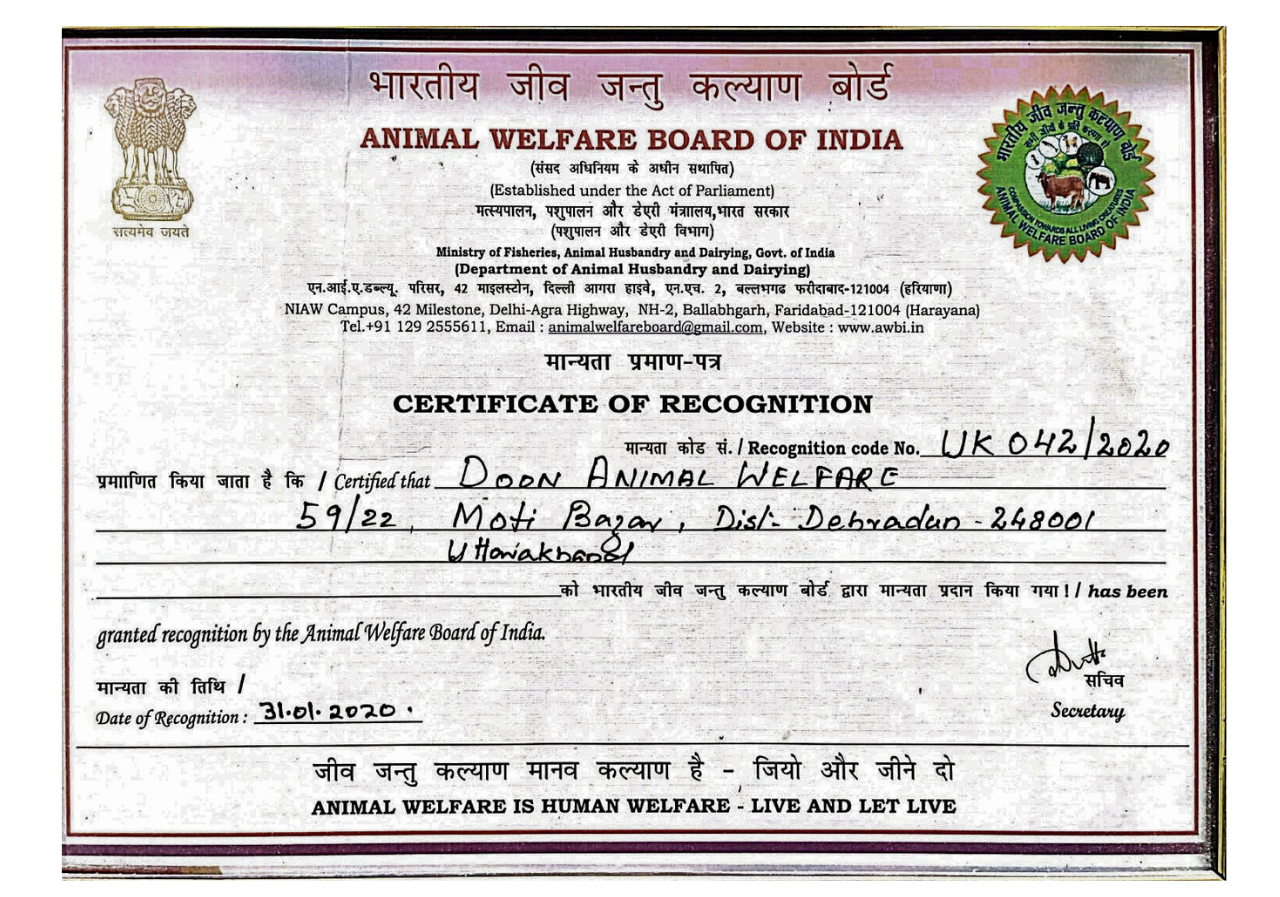 भारतीय जीव जन्तु कल्याण बोर्ड
ANIMAL WELFARE BOARD OF INDIA
(संसद अधिनियम के अधीन सथापित)
(Established under the Act of Parliament)
मत्स्यपालन, पशुपालन और डेएरी मंत्राालय,भारत सरकार
(पशुपालन और डेएरी विभाग)
Ministry of Fisheries, Animal Husbandry and Dairying, Govt. of India
(Department of Animal Husbandry and Dairying)
एन.आई.ए.डब्ल्यू. परिसर, 42 माइलस्टोन, दिल्ली आगरा हाइवे, एन.एच. 2, बल्लभगढ फरीदाबाद-121004 (हरियाणा)
NIAW Campus, 42 Milestone, Delhi-Agra Highway, NH-2, Ballabhgarh, Faridabad-121004 (Harayana)
Tel.+91 129 2555611, Email : animalwelfareboard@gmail.com, Website : www.awbi.in
सत्यमेव जयते
भारतीय जीव जन्तु कल्याण बोर्ड
सभी जीवों के प्रति करुणा
COMPASSION TOWARDS ALL LIVING CREATURES
ANIMAL WELFARE BOARD OF INDIA
मान्यता प्रमाण-पत्र
CERTIFICATE OF RECOGNITION
मान्यता कोड सं. / Recognition code No. UK 042/2020
प्रमााणित किया जाता है कि / Certified that DOON ANIMAL WELFARE
59/22, Moti Bazar, Dist:- Dehradun - 248001
Uttarakhand
को भारतीय जीव जन्तु कल्याण बोर्ड द्वारा मान्यता प्रदान किया गया ! / has been
granted recognition by the Animal Welfare Board of India.
मान्यता की तिथि /
Date of Recognition : 31.01.2020.
सचिव
Secretary
जीव जन्तु कल्याण मानव कल्याण है - जियो और जीने दो
ANIMAL WELFARE IS HUMAN WELFARE - LIVE AND LET LIVE